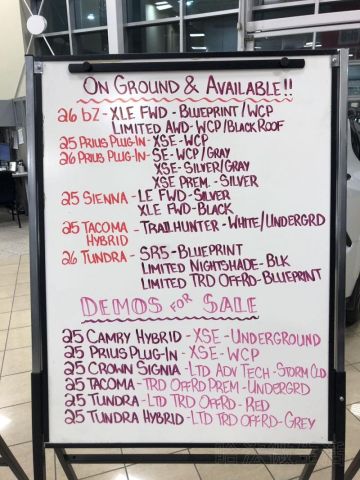 ON GROUND & AVAILABLE!!
26 bZ - XLE FWD - BLUEPRINT/WCP
LIMITED AWD - WCP/BLACK ROOF
25 PRIUS PLUG-IN - XSE - WCP
26 PRIUS PLUG-IN - SE - WCP/GRAY
XSE - SILVER/GRAY
XSE PREM. - SILVER
25 SIENNA - LE FWD - SILVER
XLE FWD - BLACK
25 TACOMA HYBRID - TRAILHUNTER - WHITE/UNDERGRD
26 TUNDRA - SR5 - BLUEPRINT
LIMITED NIGHTSHADE - BLK
LIMITED TRD OFFRD - BLUEPRINT
DEMOS FOR SALE
25 CAMRY HYBRID - XSE - UNDERGROUND
25 PRIUS PLUG-IN - XSE - WCP
25 CROWN SIGNIA - LTD ADV TECH - STORM CLD
25 TACOMA - TRD OFFRD PREM - UNDERGRD
25 TUNDRA - LTD TRD OFFRD - RED
25 TUNDRA HYBRID - LTD TRD OFFRD - GREY